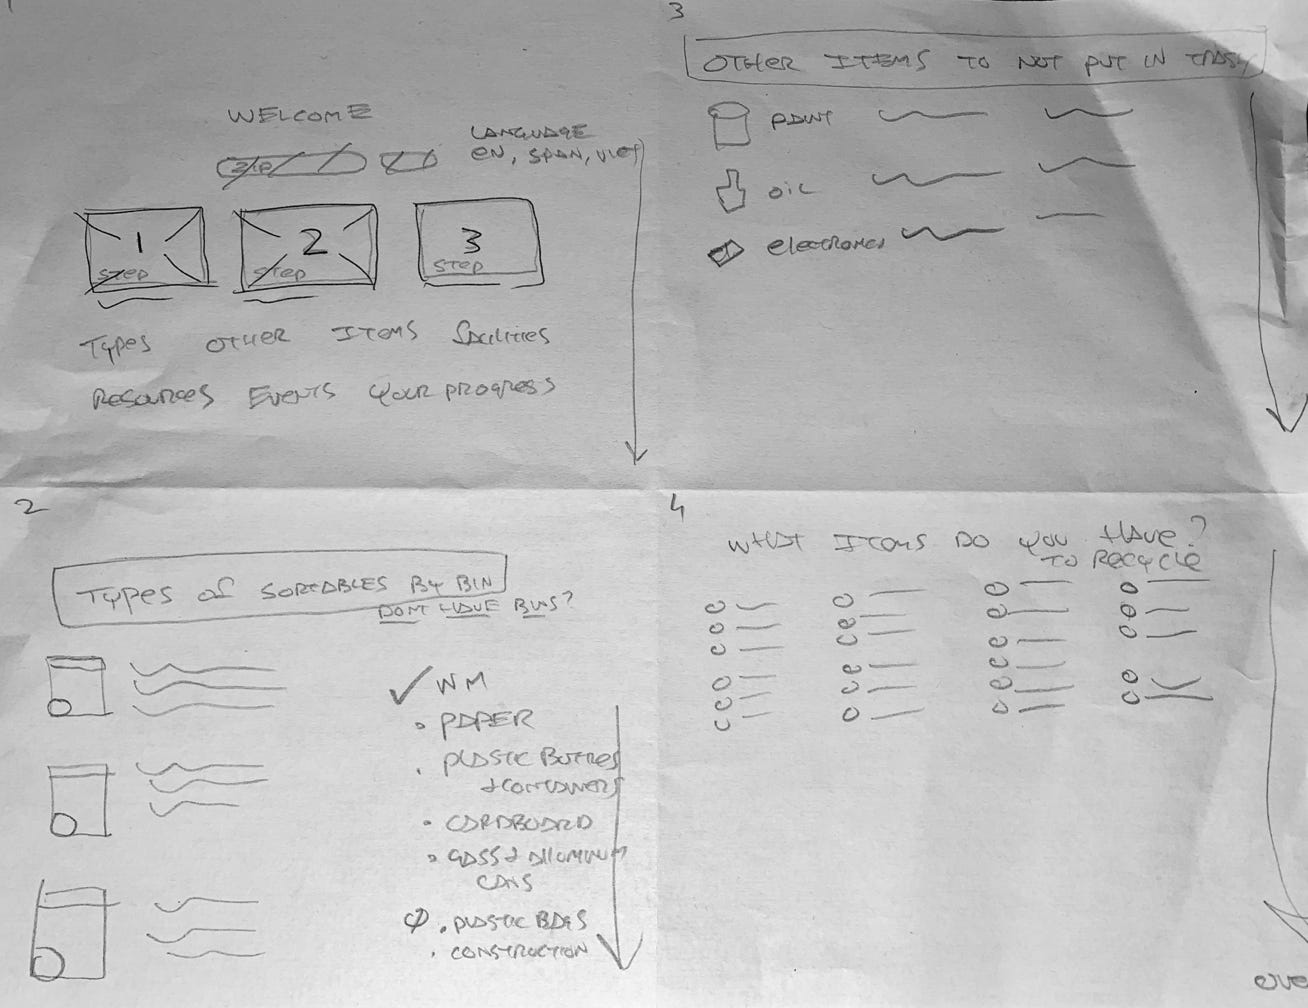 1
WELCOME
LANGUAGE
EN, SPAN, VIET
ZIP
1
STEP
2
STEP
3
STEP
TYPES OTHER ITEMS FACILITIES
RESOURCES EVENTS YOUR PROGRESS
2
TYPES OF SORTABLES BY BIN
DONT HAVE BINS?
WM
• PAPER
• PLASTIC BOTTLES
& CONTAINERS
• CARDBOARD
• GLASS & ALLUMINUM
CANS
• PLASTIC BAGS
• CONSTRUCTION
3
OTHER ITEMS TO NOT PUT IN TRASH
PAINT
OIL
ELECTRONICS
4
WHAT ITEMS DO YOU HAVE?
TO RECYCLE